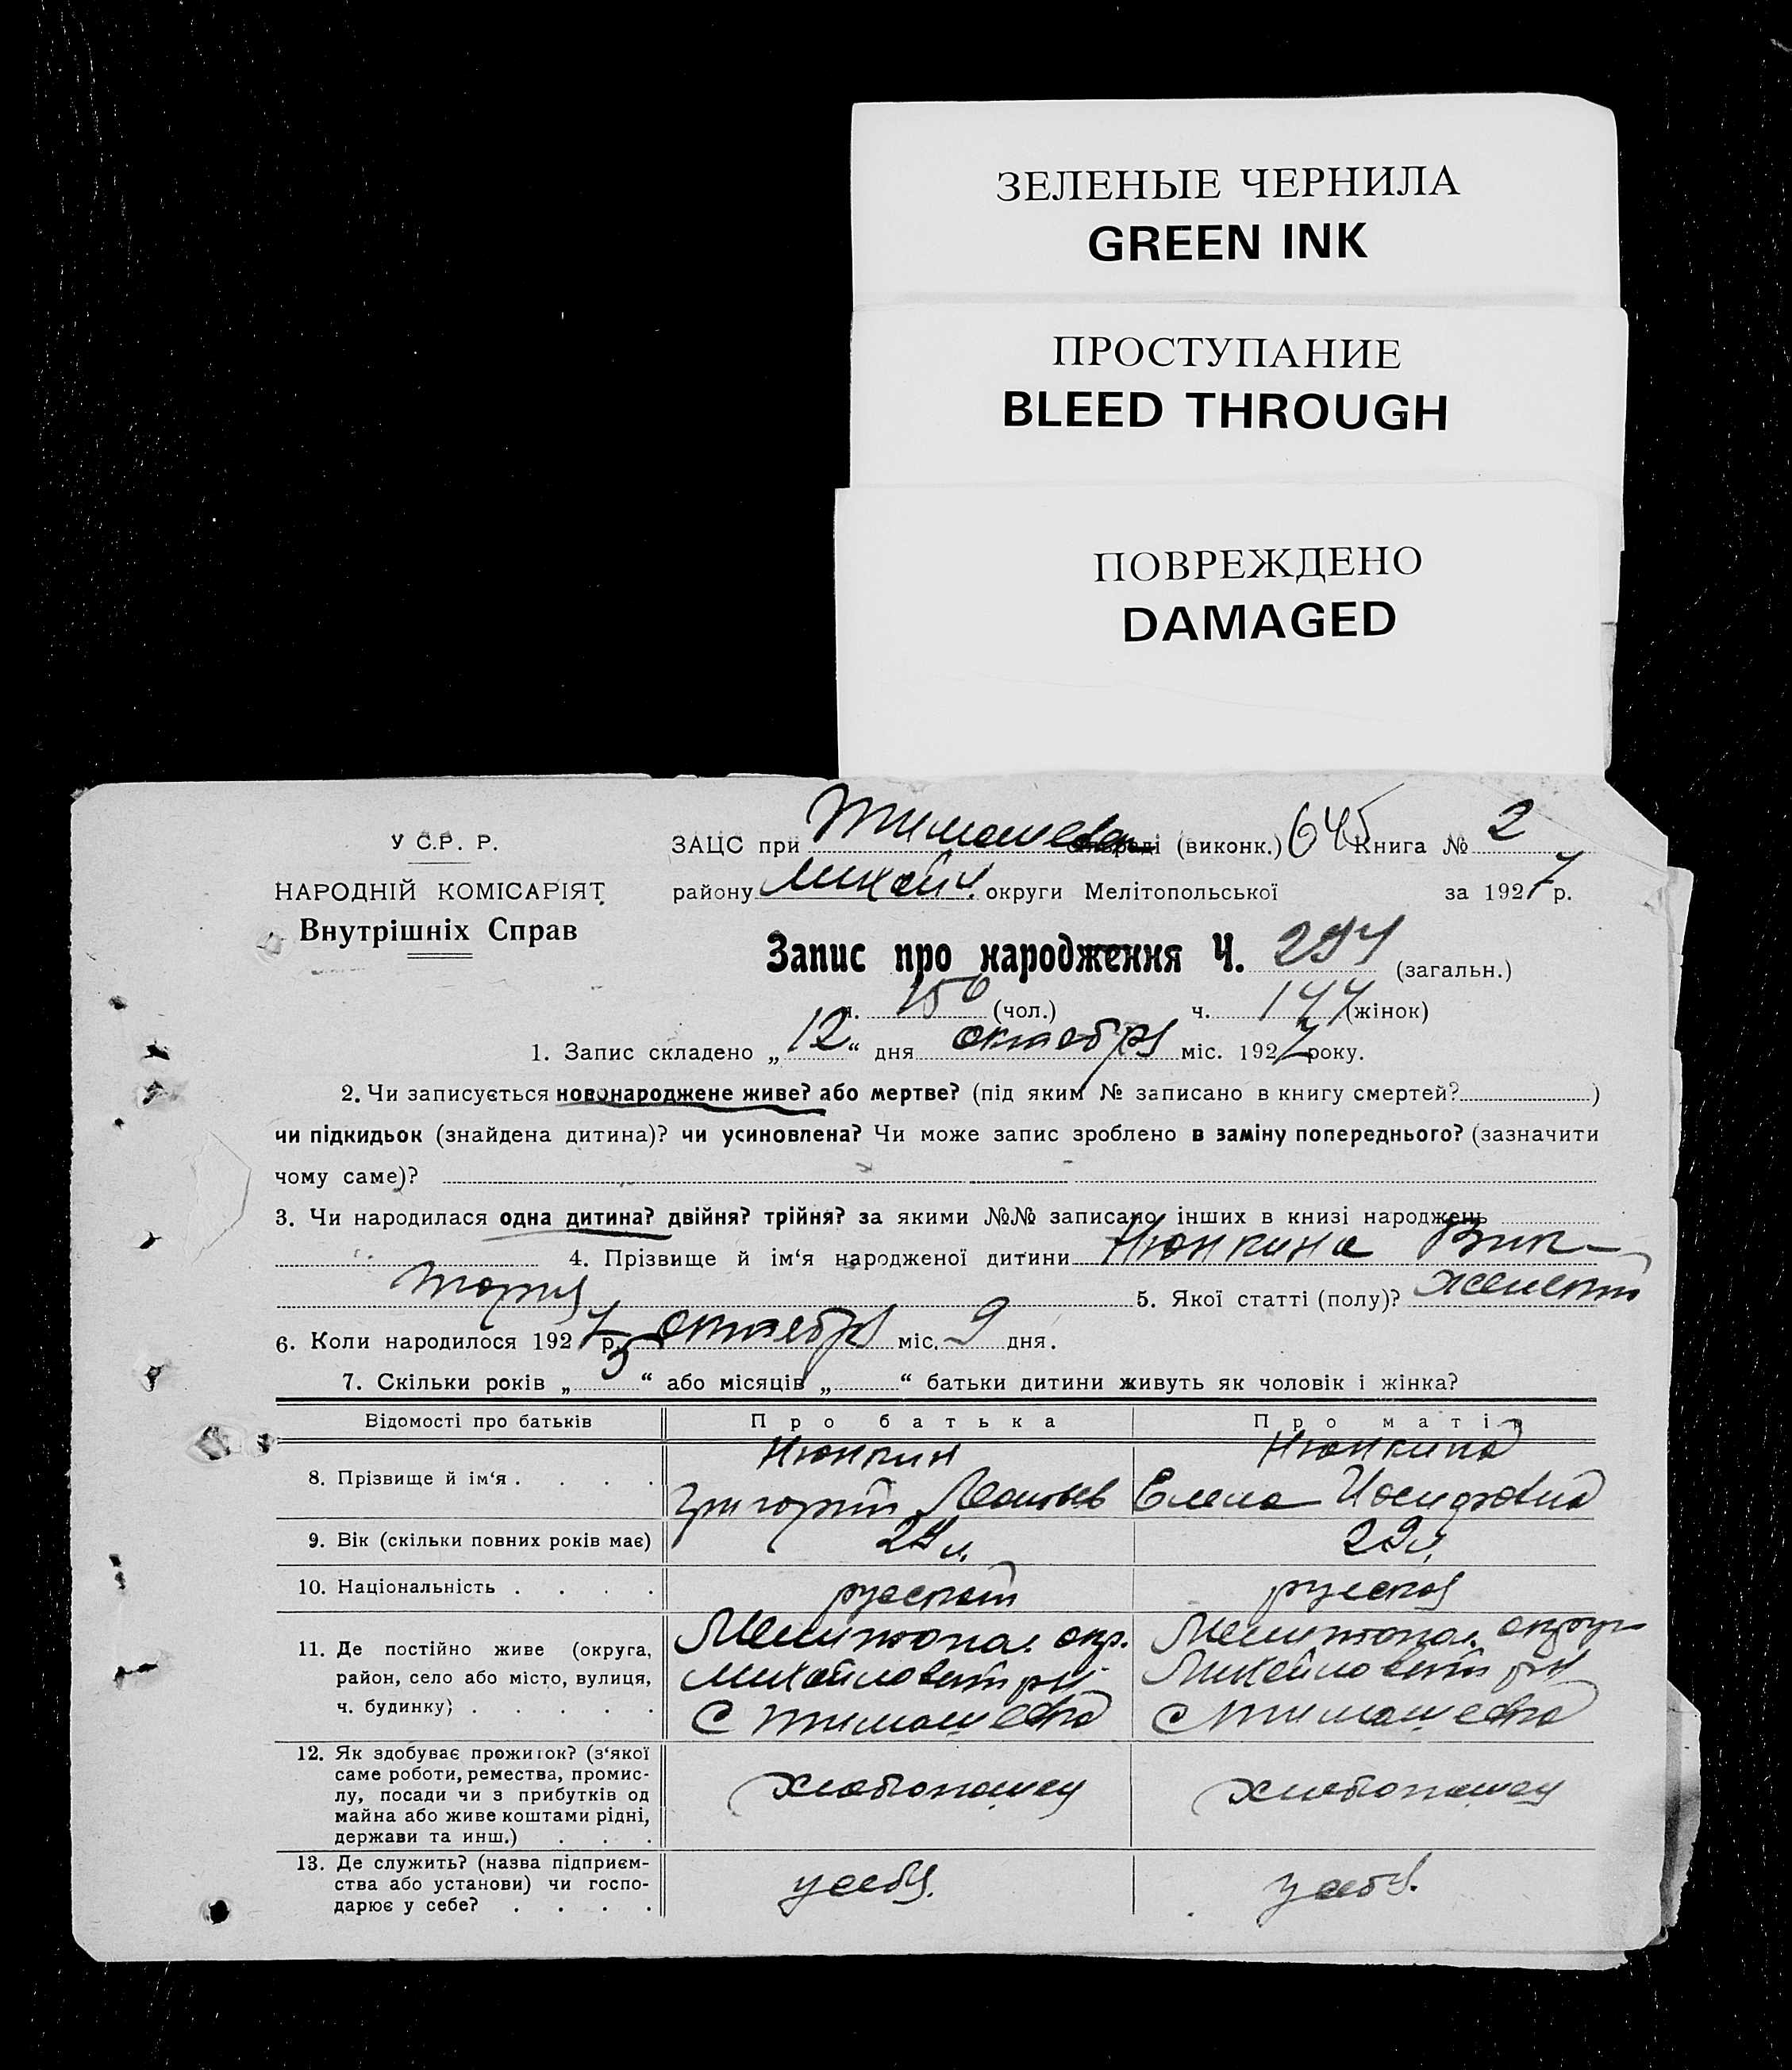 ЗЕЛЕНЫЕ ЧЕРНИЛА
GREEN INK
ПРОСТУПАНИЕ
BLEED THROUGH
ПОВРЕЖДЕНО
DAMAGED
У С.Р. Р.
НАРОДНІЙ КОМІСАРІЯТ
Внутрішніх Справ
ЗАЦС при Тимошев (виконк.) 645 Книга № 2
району Михайл. округи Мелітопольської за 1927 р.
Запис про народження Ч. 294 (загальн.)
ч. 150 (чол.) ч. 144 (жінок)
1. Запис складено „12“ дня октября міс. 1927 року.
2. Чи записується новонароджене живе? або мертве? (під яким № записано в книгу смертей?)
чи підкидьок (знайдена дитина)? чи усиновлена? Чи може запис зроблено в заміну попереднього? (зазначити
чому саме)?
3. Чи народилася одна дитина? двійня? трійня? за якими №№ записано інших в книзі народжень
4. Прізвище й ім‘я народженої дитини Нюнкина Вик-
тория 5. Якої статті (полу)? женский
6. Коли народилося 1927 р. октября міс. 9 дня.
7. Скільки років „5“ або місяців „ “ батьки дитини живуть як чоловік і жінка?
Відомості про батьків Про батька Про матір
8. Прізвище й ім‘я . . . . Нюнкин Нюнкина
Григорий Леонтьев Елена Иосифовна
9. Вік (скільки повних років має) 29 л. 29 л.
10. Національність . . . . русский русская
11. Де постійно живе (округа, Мелитопол. окр. Мелитопол. округ
район, село або місто, вулиця, Михайловский рн Михайловский рн
ч. будинку) . . . . . С Тимошевка С Тимошевка
12. Як здобуває прожиток? (з‘якої
саме роботи, ремества, промис-
лу, посади чи з прибутків од хлебопашец хлебопашец
майна або живе коштами рідні,
держави та инш.) . . .
13. Де служить? (назва підприєм-
ства або установи) чи госпо- у себя. у себя.
дарює у себе? . . . .